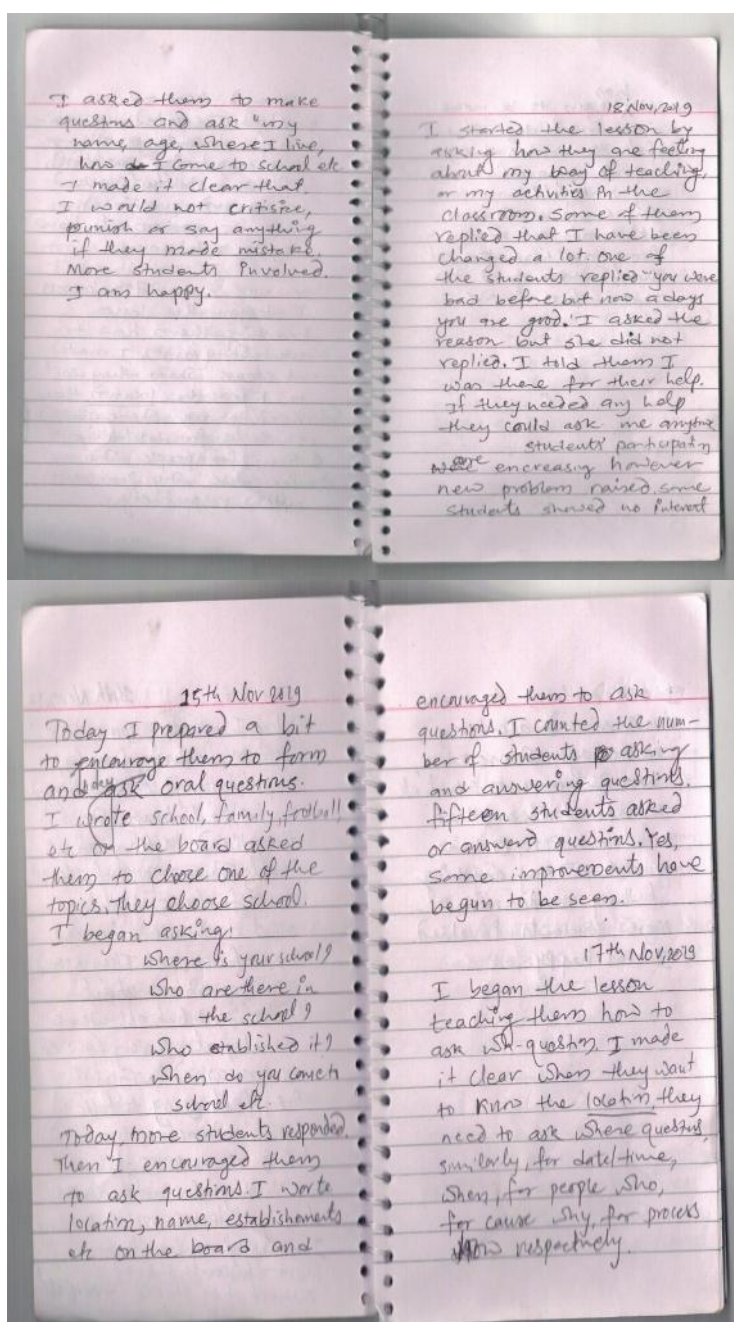 I asked them to make
questions and ask "my
name, age, where I live,
how I come to school etc
I made it clear that
I would not critisize,
punish or say anything
if they made mistake.
More students involved.
I am happy.
18 Nov, 2019
I started the lesson by
asking how they are feeling
about my way of teaching,
or my activities in the
classroom. Some of them
replied that I have been
changed a lot. one of
the students replied "you were
bad before but now a days
you are good." I asked the
reason but she did not
replied. I told them I
was there for their help.
If they needed any help
they could ask me anytime
students' participatin
were encreasing however
new problem raised some
students showed no interest
15th Nov 2019
Today I prepared a bit
to encourage them to form
and ask oral questions.
I wrote school, family, football
etc on the board asked
them to choose one of the
topics. They choose school.
I began asking:
where is your school?
who are there in
the school?
who established it?
when do you come to
school etc.
Today, more students responded.
Then I encouraged them
to ask questions. I worte
location, name, establishments
etc on the board and
encouraged them to ask
questions. I counted the num-
ber of students asking
and answering questions.
fifteen students asked
or answerd questions. Yes,
some improvements have
begun to be seen.
17th Nov, 2019
I began the lesson
teaching them how to
ask wh-questin. I made
it clear when they want
to know the location, they
need to ask where questins,
similarly, for date/time,
when, for people who,
for cause why, for process
how respectively.